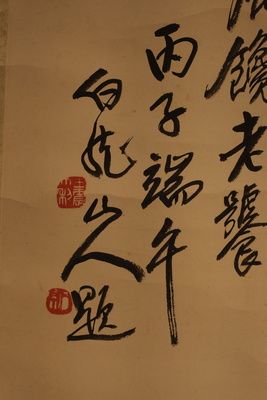 饞老饕
丙子端午
白龍山人題